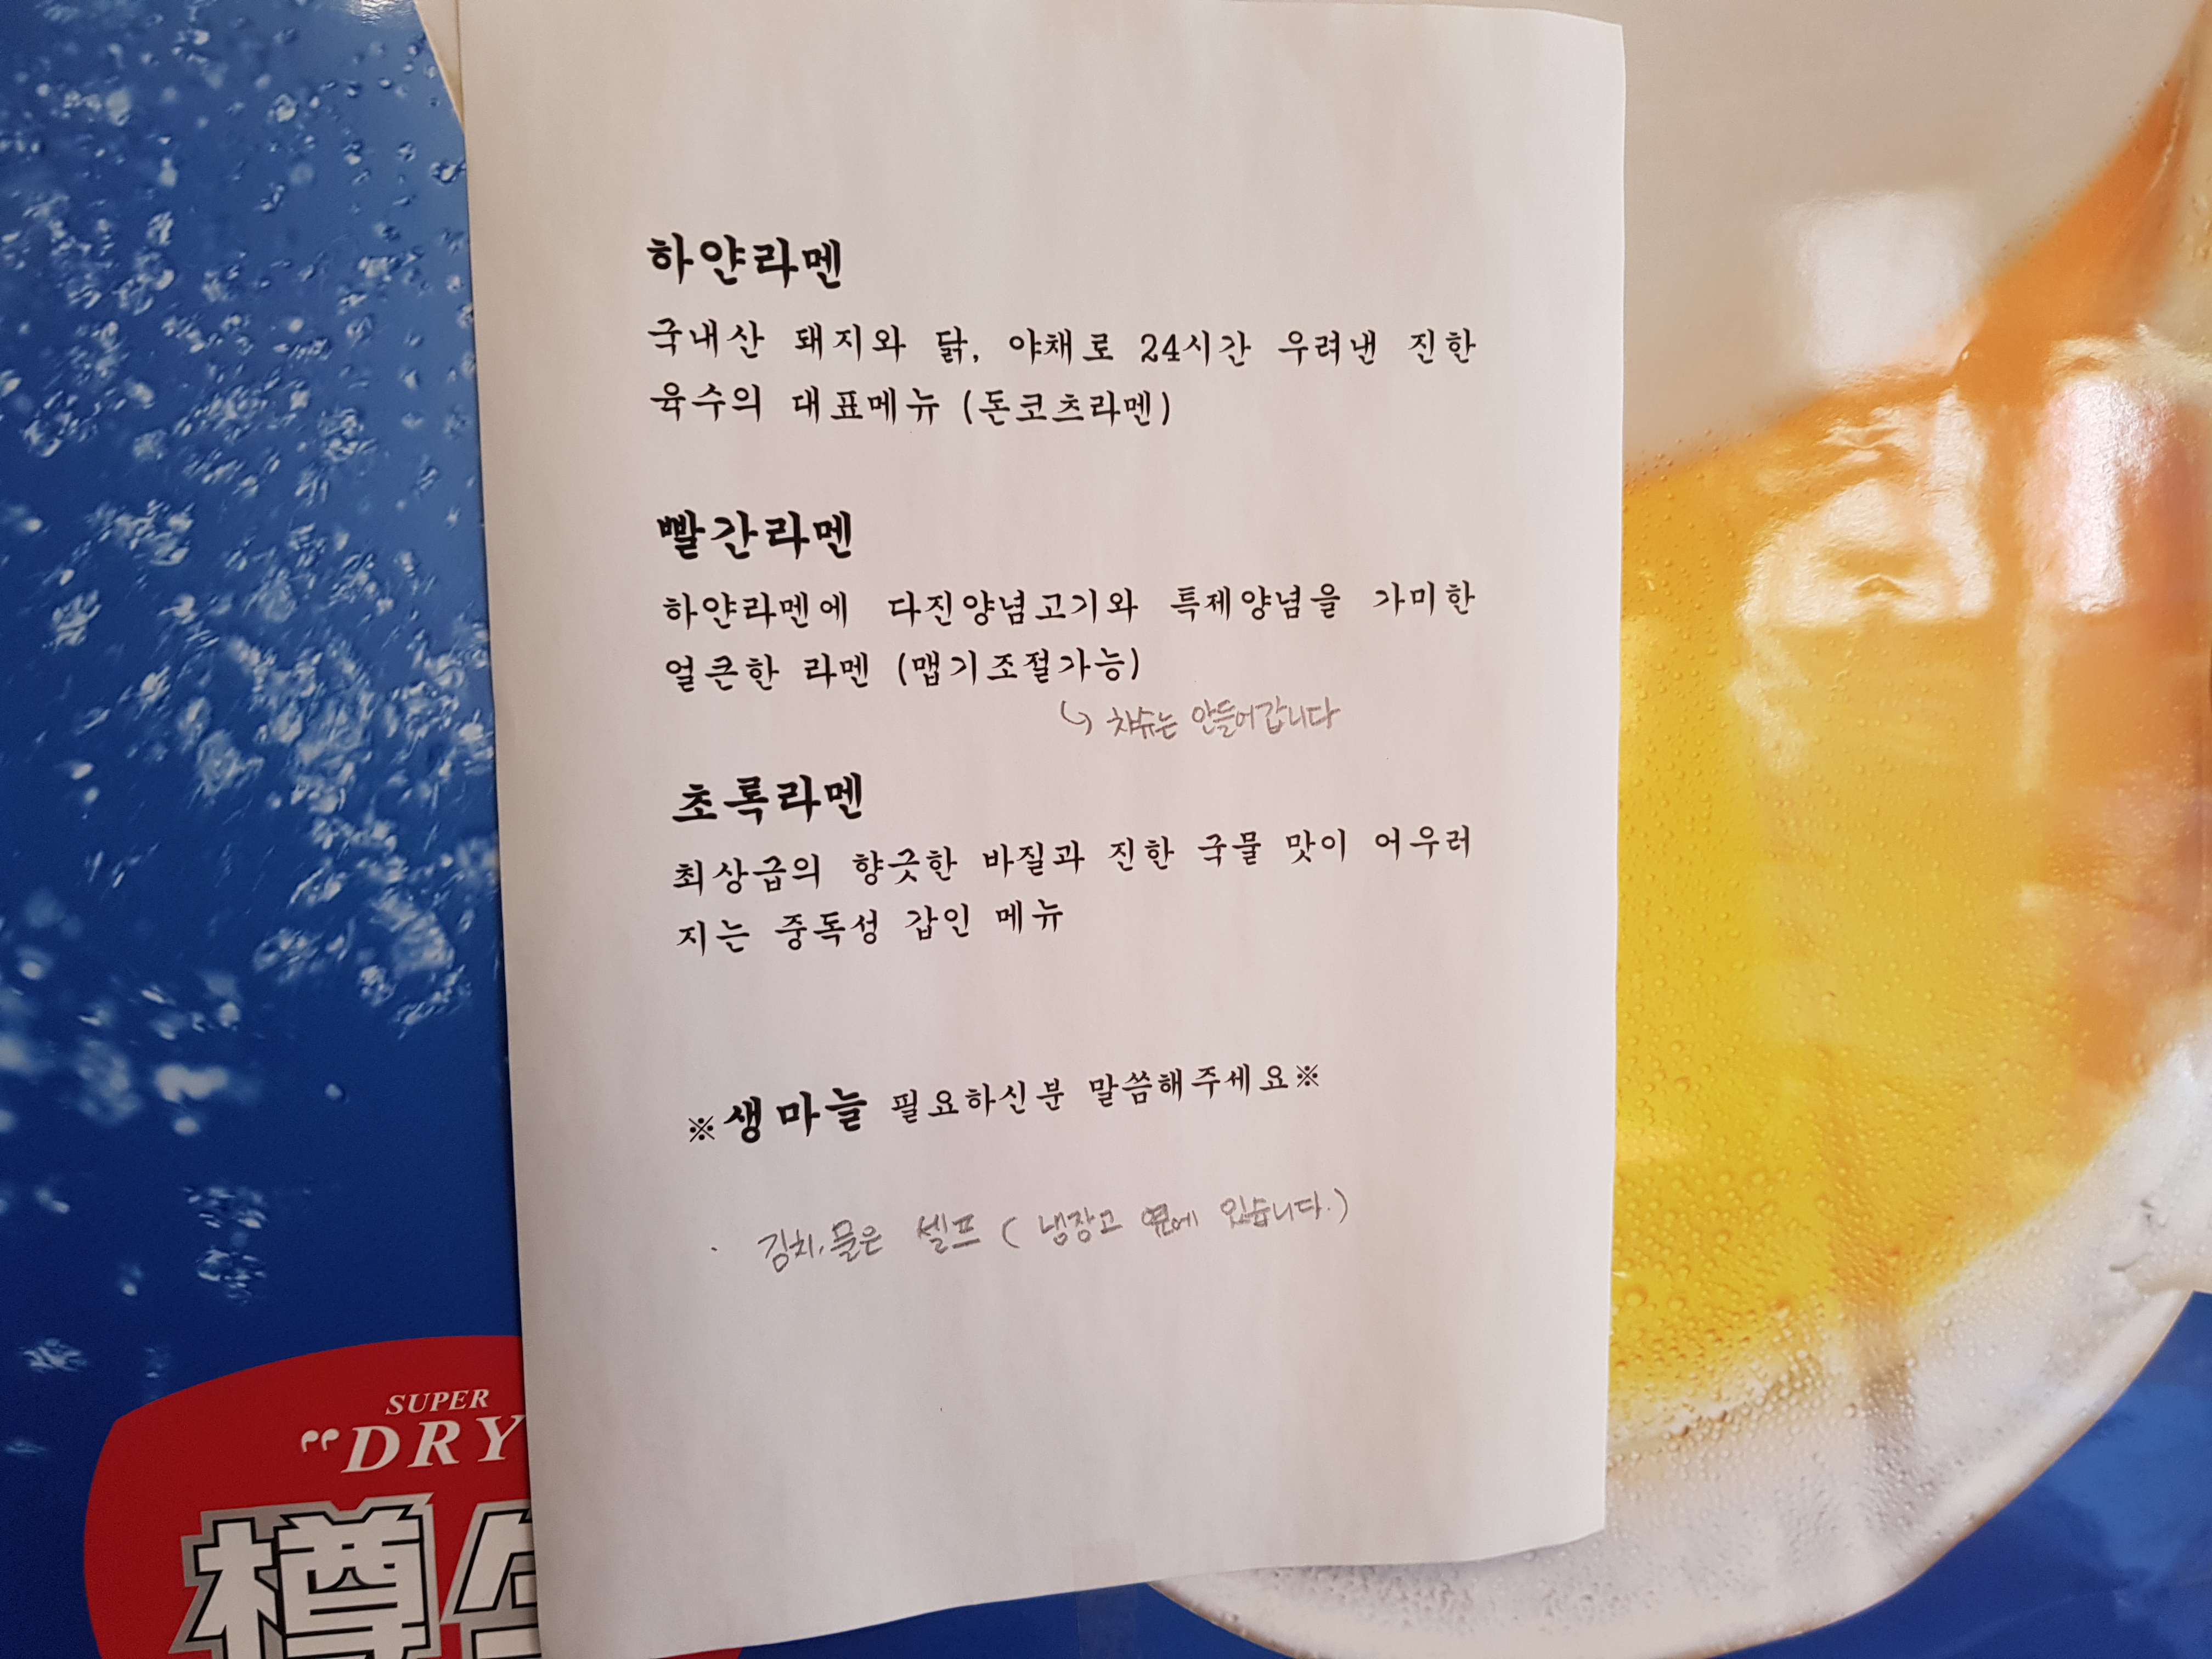 하얀라멘
국내산 돼지와 닭, 야채로 24시간 우려낸 진한
육수의 대표메뉴 (돈코츠라멘)
빨간라멘
하얀라멘에 다진양념고기와 특제양념을 가미한
얼큰한 라멘 (맵기조절가능)
↳ 차슈는 안들어갑니다
초록라멘
최상급의 향긋한 바질과 진한 국물 맛이 어우러
지는 중독성 갑인 메뉴
※생마늘 필요하신분 말씀해주세요※
· 김치, 물은 셀프 ( 냉장고 옆에 있습니다.)
SUPER
"DRY
樽生